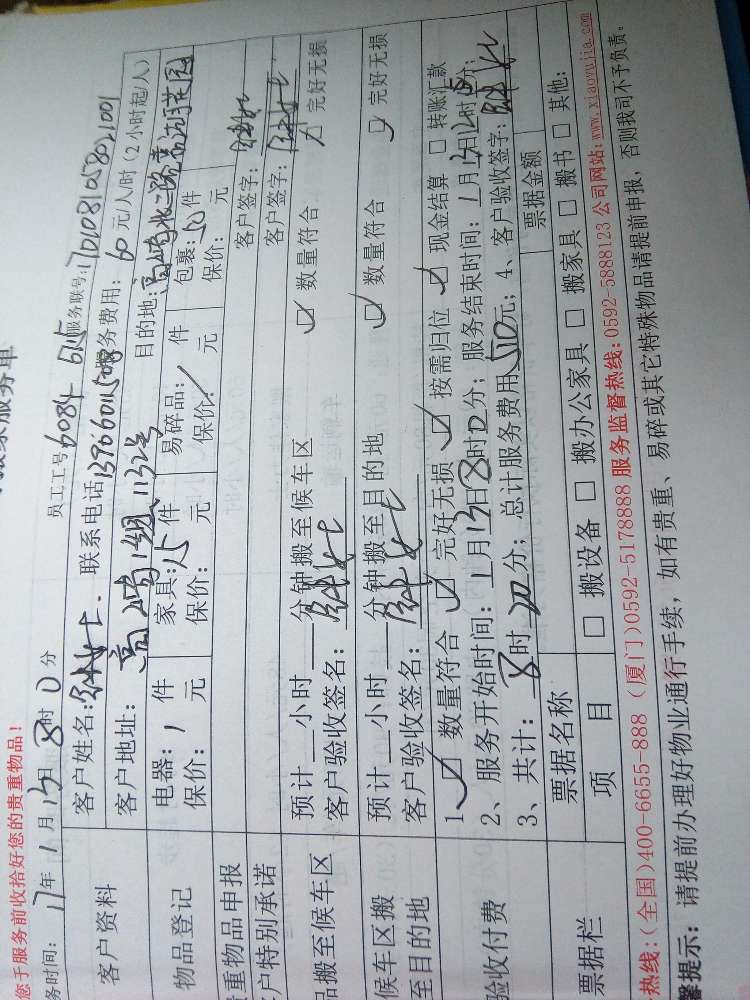 您于服务前收拾好您的贵重物品!
务时间: 17年 1月 13日 8时 0分
员工工号 6084 6115 服务联号: 1701081058021001
客户资料
客户姓名: 联系电话 服务费用: 60 元/人/时(2小时起/人)
客户地址: 高崎 组 113号 目的地: 高崎北二路 花园
物品登记
电器: 1 件 家具: 15 件 易碎品: / 件 包裹: 50 件
保价: 元 保价: 元 保价: / 元 保价: 元
贵重物品申报 客户签字:
客户特别承诺 客户签字:
品搬至候车区
预计 小时 分钟搬至候车区 ☑ 数量符合 ☑ 完好无损
客户验收签名:
候车区搬
至目的地
预计 小时 分钟搬至目的地 ☑ 数量符合 ☑ 完好无损
客户验收签名:
验收付费
1、☑ 数量符合 ☑ 完好无损 ☑ 按需归位 ☑ 现金结算 □ 转账汇款
2、服务开始时间: 1月13日8时0分; 服务结束时间: 1月13日 时 分;
3、共计: 8时 分; 总计服务费用 510元; 4、客户验收签字:
票据栏
票据名称 票据金额
项 目 □ 搬设备 □ 搬办公家具 □ 搬家具 □ 搬书 □ 其他:
热线: (全国)400-6655-888 (厦门)0592-5178888 服务监督热线: 0592-5888123 公司网站: www.xiaoyujia.com
馨提示: 请提前办理好物业通行手续, 如有贵重、易碎或其它特殊物品请提前申报, 否则我司不予负责。